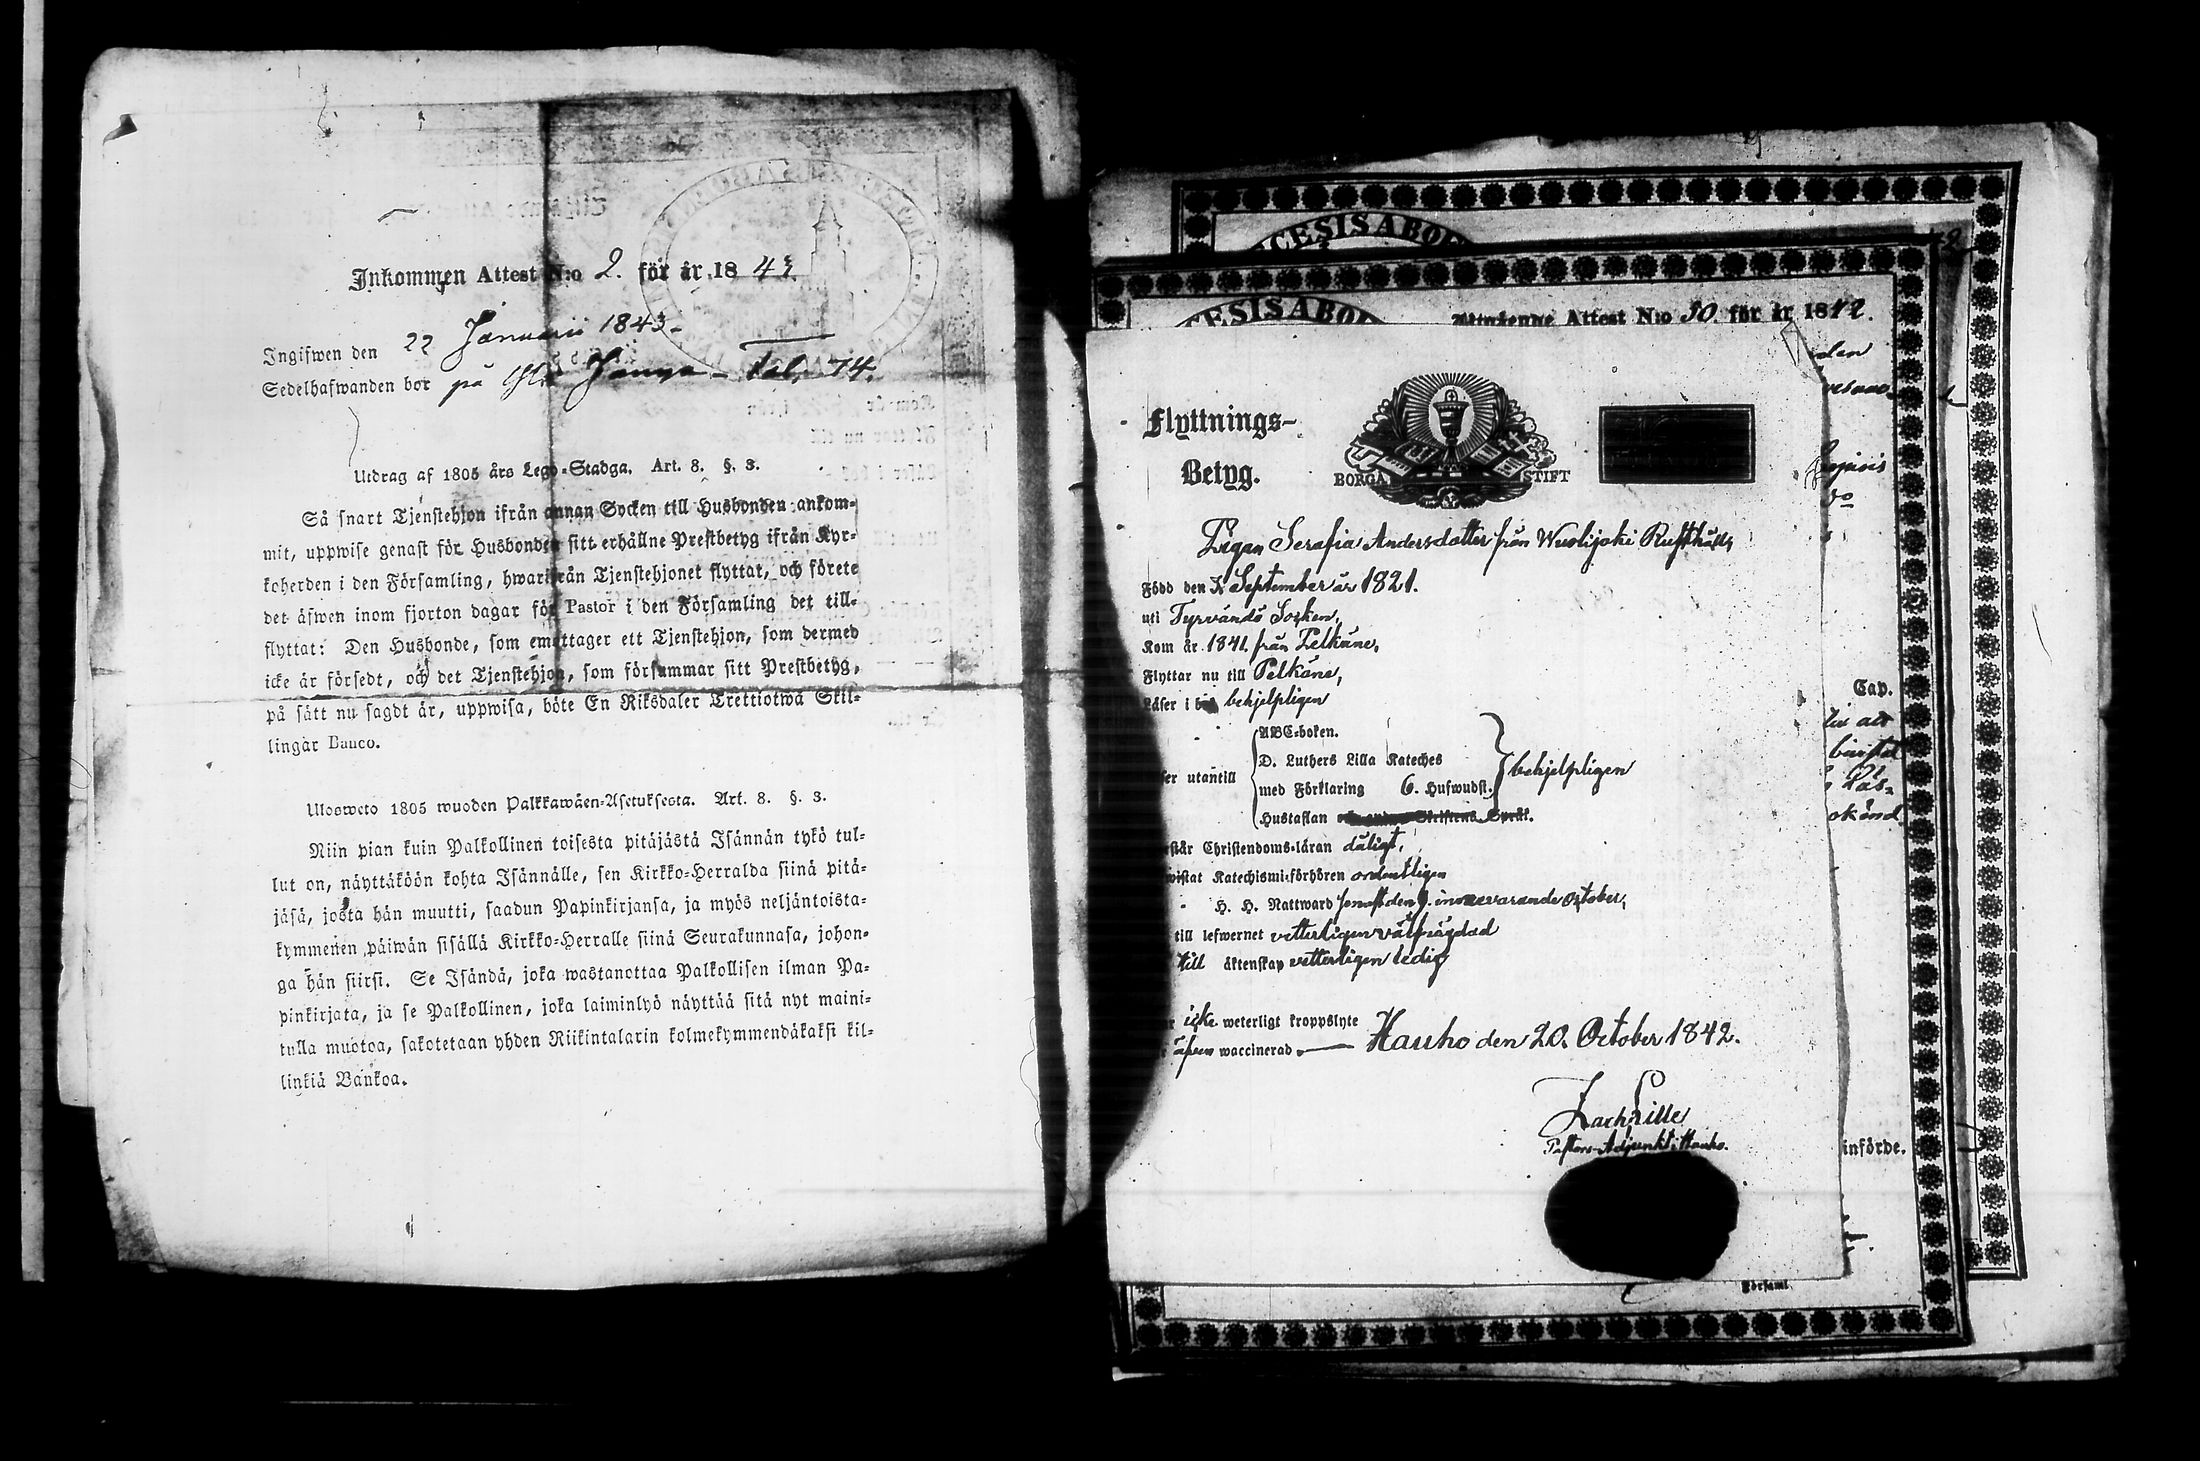 Inkommen Attest N:o 2. för år 1843.
Ingifwen den 22 Januarii 1843.
Sedelhafwanden bor på
Utdrag af 1805 års Lego-Stadga. Art. 8. §. 3.
Så snart Tjenstehjon ifrån annan Socken till Husbonden ankom-
mit, uppwise genast för Husbonden sitt erhållne Prestbetyg ifrån Kyr-
koherden i den Församling, hwarifrån Tjenstehjonet flyttat, och förete
det äfwen inom fjorton dagar för Pastor i den Församling det till-
flyttat: Den Husbonde, som emottager ett Tjenstehjon, som dermed
icke är försedt, och det Tjenstehjon, som försummar sitt Prestbetyg,
på sätt nu sagdt är, uppwisa, böte En Riksdaler Trettiotwå Skil-
lingar Banco.
Ulosweto 1805 wuoden Palkkawäen-Asetuksesta. Art. 8. §. 3.
Niin pian kuin Palkollinen toisesta pitäjästä Isännän tykö tul-
lut on, näyttäköön kohta Isännälle, sen Kirkko-Herralda siinä pitä-
jäsä, josta hän muutti, saadun Papinkirjansa, ja myös neljäntoista-
kymmenen päiwän sisällä Kirkko-Herralle siinä Seurakunnasa, johon-
ga hän siirsi. Se Isändä, joka wastanottaa Palkollisen ilman Pa-
pinkirjata, ja se Palkollinen, joka laiminlyö näyttää sitä nyt maini-
tulla muotoa, sakotetaan yhden Riikintalarin kolmekymmendäkaksi kil-
linkiä Bankoa.
CESIS ABO
CESIS ABO
Attest N:o 50. för år 1842.
den
Flyttnings-
Betyg.
BORGÅ STIFT
Pigan Serafia Andersdotter från Wuolijoki Rusthåll,
Född den September år 1821.
uti Tyrvändö Socken,
Kom år 1841 från Pelkäne,
Flyttar nu till Pelkäne,
Läser i bok behjelpligen
utantill
ABC-boken.
D. Luthers Lilla Kateches
med Förklaring 6. Hufwudst.
Hustaflan
behjelpligen
Christendoms-läran dåligt,
Katechismi-förhören ordentligen
H. H. Nattward senast den 9. innevarande October,
till lefwernet vetterligen välfrägdad
till äktenskap vetterligen ledig
icke weterligt kroppslyte
äfven waccinerad
Hauho den 20. October 1842.
Zach Lille
Pastors-Adjunkt i Hauho.
Cap.
införde.
Församl.